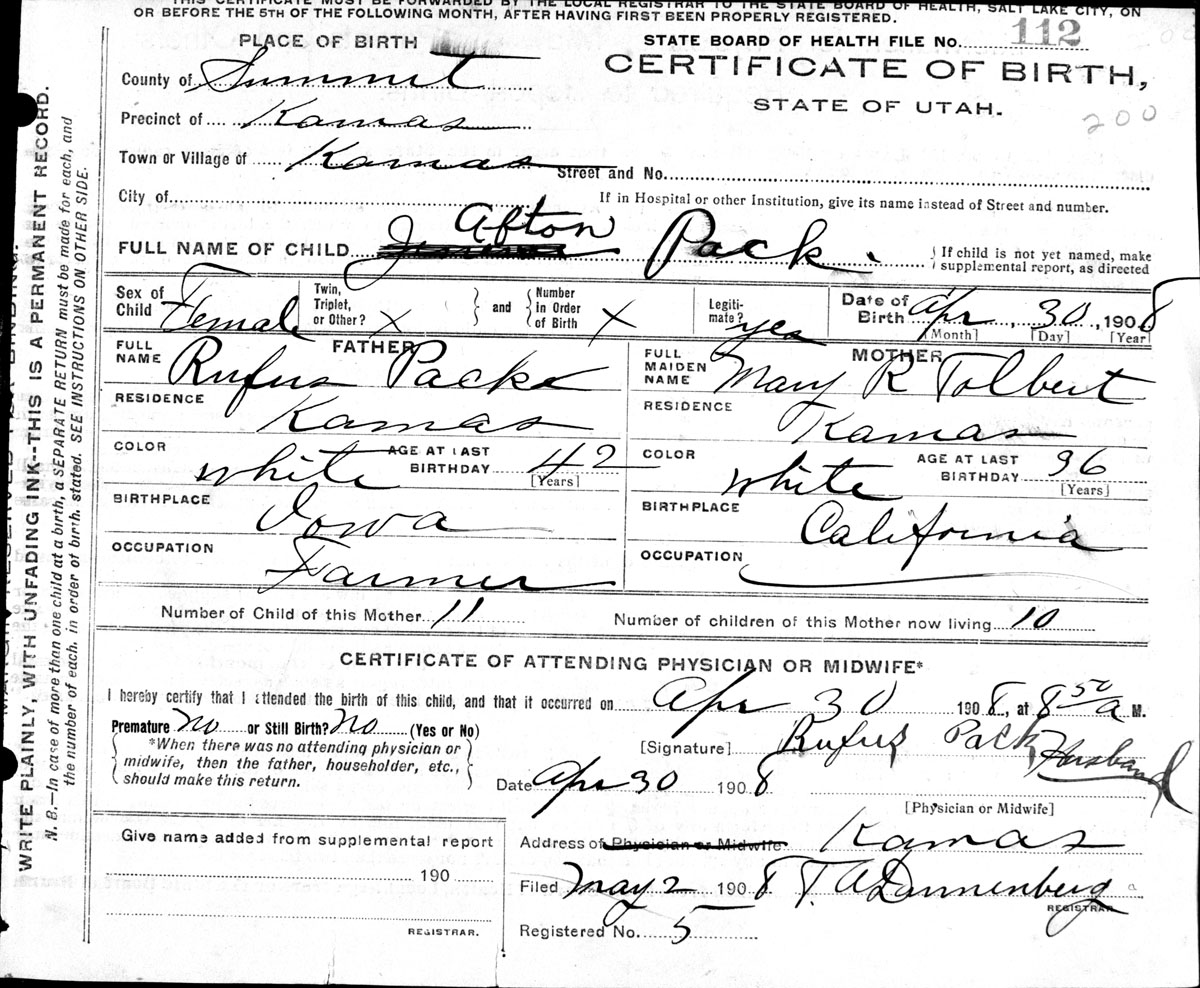 THIS CERTIFICATE MUST BE FORWARDED BY THE LOCAL REGISTRAR TO THE STATE BOARD OF HEALTH, SALT LAKE CITY, ON
OR BEFORE THE 5TH OF THE FOLLOWING MONTH, AFTER HAVING FIRST BEEN PROPERLY REGISTERED.
PLACE OF BIRTH
STATE BOARD OF HEALTH FILE No. 112
CERTIFICATE OF BIRTH,
STATE OF UTAH.
200
County of Summit
Precinct of Kamas
Town or Village of Kamas
Street and No.
City of
If in Hospital or other Institution, give its name instead of Street and number.
FULL NAME OF CHILD Afton Pack.
If child is not yet named, make
supplemental report, as directed
Sex of Child Female
Twin, Triplet, or Other? X
and Number in Order of Birth X
Legitimate? yes
Date of Birth Apr, 30, 1908
[Month] [Day] [Year]
FATHER
FULL NAME Rufus Pack
RESIDENCE Kamas
COLOR white AGE AT LAST BIRTHDAY 42
[Years]
BIRTHPLACE Iowa
OCCUPATION Farmer
MOTHER
FULL MAIDEN NAME Mary R Tolbert
RESIDENCE Kamas
COLOR white AGE AT LAST BIRTHDAY 36
[Years]
BIRTHPLACE California
OCCUPATION
Number of Child of this Mother 11 Number of children of this Mother now living 10
CERTIFICATE OF ATTENDING PHYSICIAN OR MIDWIFE*
I hereby certify that I attended the birth of this child, and that it occurred on Apr 30 1908, at 8 50 a M.
Premature? no or Still Birth? no (Yes or No)
*When there was no attending physician or
midwife, then the father, householder, etc.,
should make this return.
[Signature] Rufus Pack, Husband
Date Apr 30 1908
[Physician or Midwife]
Give name added from supplemental report
190
REGISTRAR.
Address of Physician or Midwife Kamas
Filed May 2 1908 T. A. Dannenberg
REGISTRAR
Registered No. 5
WRITE PLAINLY, WITH UNFADING INK--THIS IS A PERMANENT RECORD.
N. B.—In case of more than one child at a birth, a SEPARATE RETURN must be made for each, and
the number of each, in order of birth, stated. SEE INSTRUCTIONS ON OTHER SIDE.